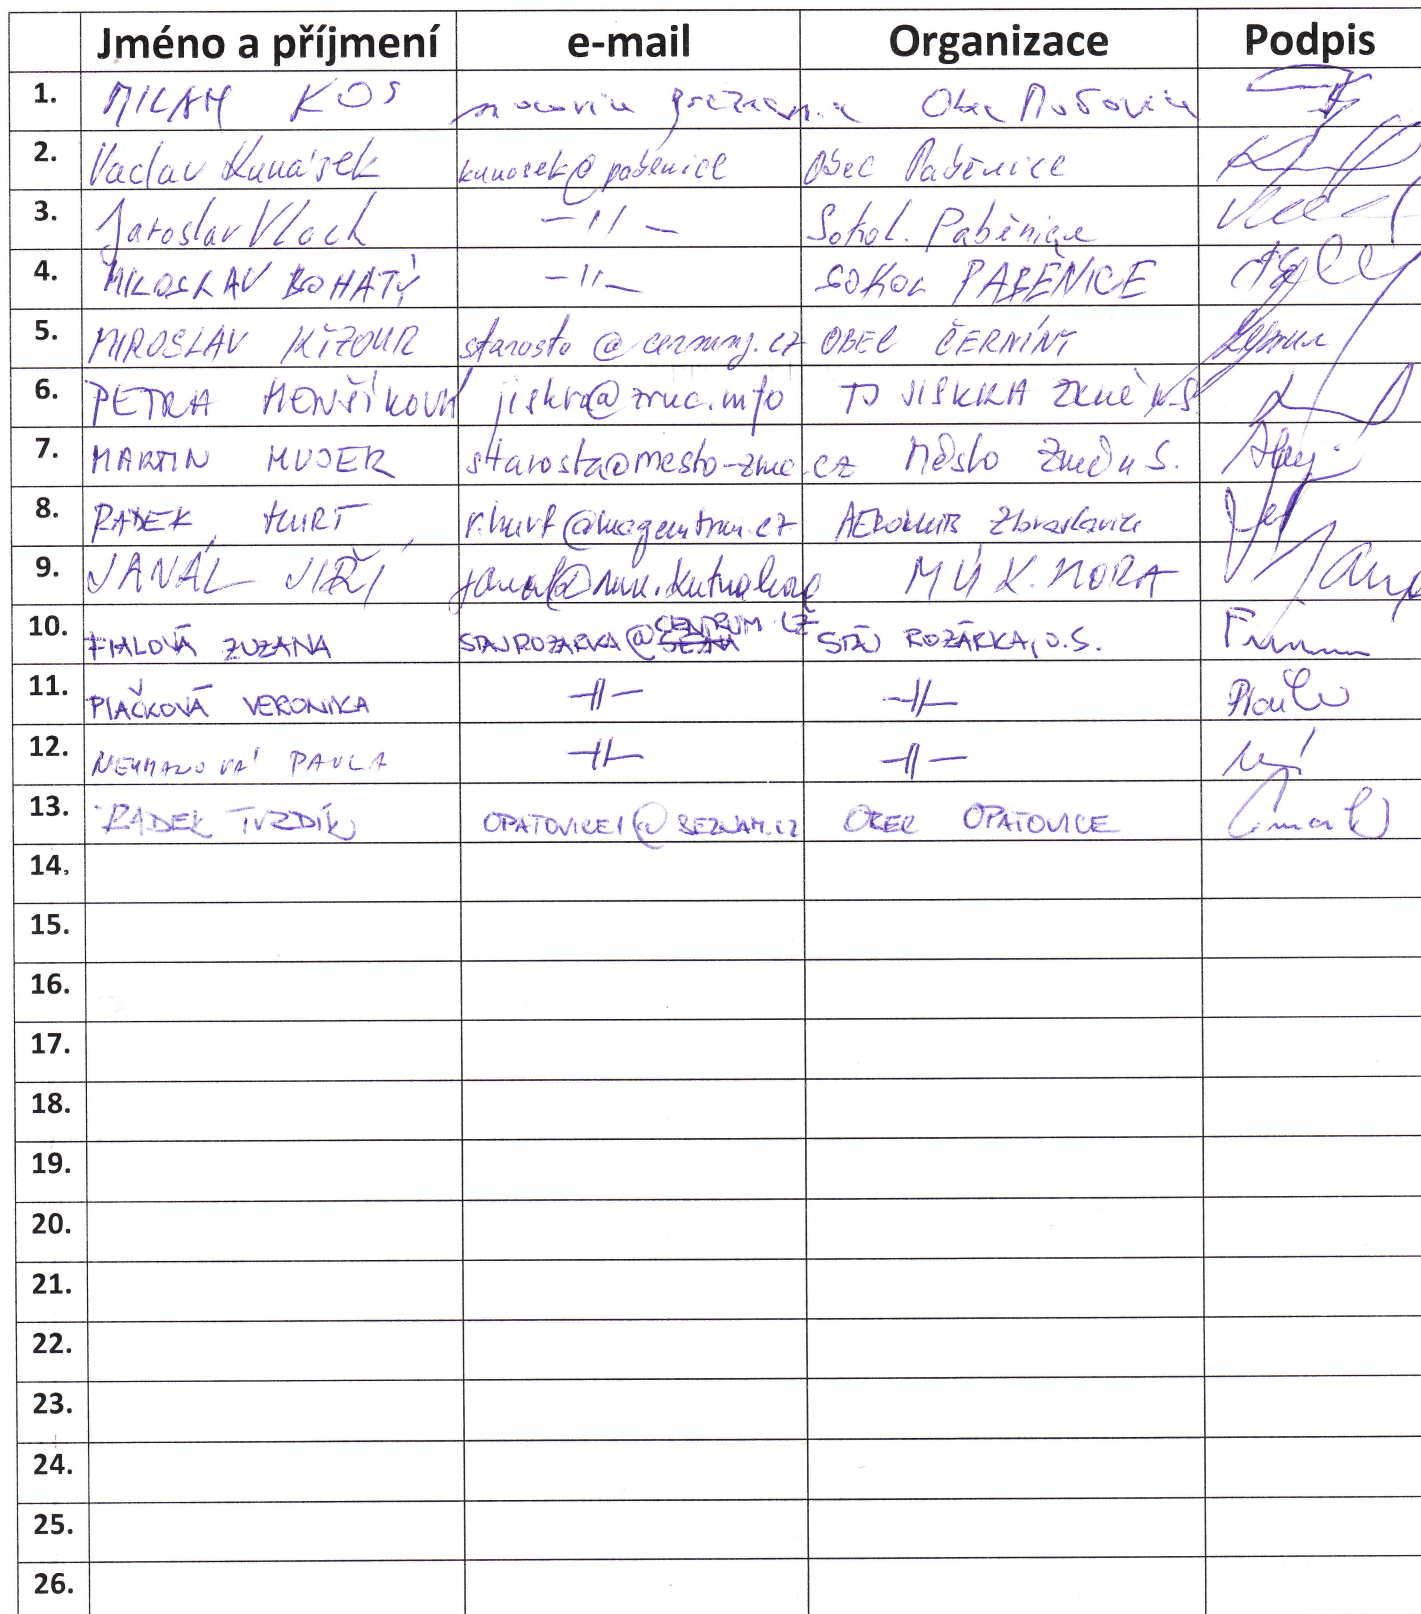 Jméno a příjmení e-mail Organizace Podpis
1. MILAN KOS Obec
2. Vaclav Kunášek kunasek@pabenice Obec Paběnice
3. Jaroslav Vlach -//- Sokol. Paběnice
4. MILOSLAV BOHATÝ -//- SOKOL PABĚNICE
5. MIROSLAV starosta@cerniny.cz OBEC ČERNÍNY
6. PETRA MENŠÍKOVÁ jiskra@zruc.info TJ JISKRA ZRUČ N.S.
7. MARTIN HUJER starosta@mesto-zruc.cz Město Zruč n S.
8. RADEK HURT r.hurt@magcentrum.cz AEROKLUB Zbraslavice
9. JANÁL JIŘÍ MÚ K. HORA
10. FIALOVÁ ZUZANA STAJROZARKA@CENTRUM.CZ STÁJ ROZÁRKA, O.S.
11. PLAČKOVÁ VERONIKA -//- -//-
12. NEUMANOVÁ PAVLA -//- -//-
13. RADEK TVRDÍK OPATOVICE1@SEZNAM.CZ OBEC OPATOVICE
14.
15.
16.
17.
18.
19.
20.
21.
22.
23.
24.
25.
26.